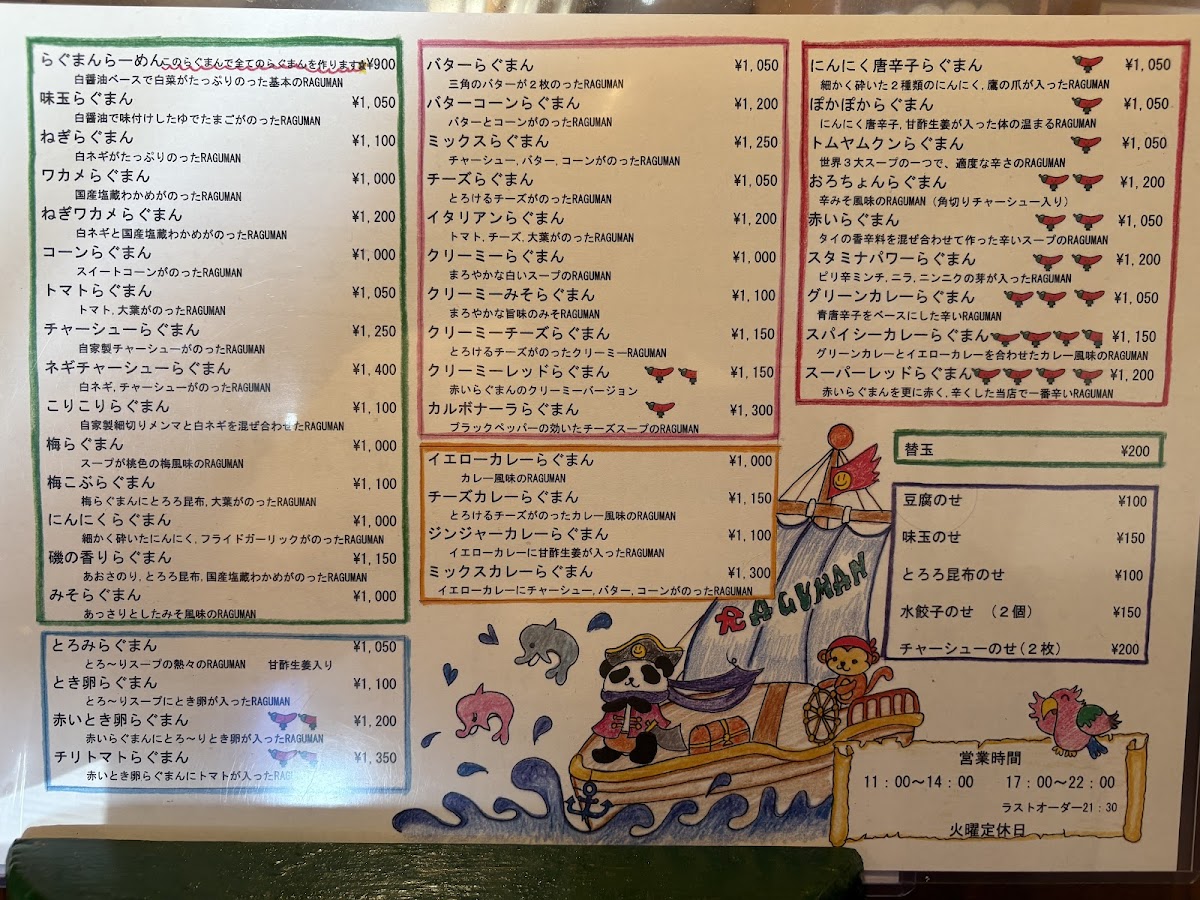 らぐまんらーめん このらぐまんで全てのらぐまんを作ります☆ ¥900
白醤油ベースで白菜がたっぷりのった基本のRAGUMAN
味玉らぐまん ¥1,050
白醤油で味付けしたゆでたまごがのったRAGUMAN
ねぎらぐまん ¥1,100
白ネギがたっぷりのったRAGUMAN
ワカメらぐまん ¥1,000
国産塩蔵わかめがのったRAGUMAN
ねぎワカメらぐまん ¥1,200
白ネギと国産塩蔵わかめがのったRAGUMAN
コーンらぐまん ¥1,000
スイートコーンがのったRAGUMAN
トマトらぐまん ¥1,050
トマト,大葉がのったRAGUMAN
チャーシューらぐまん ¥1,250
自家製チャーシューがのったRAGUMAN
ネギチャーシューらぐまん ¥1,400
白ネギ,チャーシューがのったRAGUMAN
こりこりらぐまん ¥1,100
自家製細切りメンマと白ネギを混ぜ合わせたRAGUMAN
梅らぐまん ¥1,000
スープが桃色の梅風味のRAGUMAN
梅こぶらぐまん ¥1,100
梅らぐまんにとろろ昆布,大葉がのったRAGUMAN
にんにくらぐまん ¥1,000
細かく砕いたにんにく,フライドガーリックがのったRAGUMAN
磯の香りらぐまん ¥1,150
あおさのり,とろろ昆布,国産塩蔵わかめがのったRAGUMAN
みそらぐまん ¥1,000
あっさりとしたみそ風味のRAGUMAN
とろみらぐまん ¥1,050
とろ～りスープの熱々のRAGUMAN 甘酢生姜入り
とき卵らぐまん ¥1,100
とろ～りスープにとき卵が入ったRAGUMAN
赤いとき卵らぐまん ¥1,200
赤いらぐまんにとろ～りとき卵が入ったRAGUMAN
チリトマトらぐまん ¥1,350
赤いとき卵らぐまんにトマトが入ったRAGUMAN
バターらぐまん ¥1,050
三角のバターが２枚のったRAGUMAN
バターコーンらぐまん ¥1,200
バターとコーンがのったRAGUMAN
ミックスらぐまん ¥1,250
チャーシュー,バター,コーンがのったRAGUMAN
チーズらぐまん ¥1,050
とろけるチーズがのったRAGUMAN
イタリアンらぐまん ¥1,200
トマト,チーズ,大葉がのったRAGUMAN
クリーミーらぐまん ¥1,000
まろやかな白いスープのRAGUMAN
クリーミーみそらぐまん ¥1,100
まろやかな旨味のみそRAGUMAN
クリーミーチーズらぐまん ¥1,150
とろけるチーズがのったクリーミーRAGUMAN
クリーミーレッドらぐまん ¥1,150
赤いらぐまんのクリーミーバージョン
カルボナーラらぐまん ¥1,300
ブラックペッパーの効いたチーズスープのRAGUMAN
イエローカレーらぐまん ¥1,000
カレー風味のRAGUMAN
チーズカレーらぐまん ¥1,150
とろけるチーズがのったカレー風味のRAGUMAN
ジンジャーカレーらぐまん ¥1,100
イエローカレーに甘酢生姜が入ったRAGUMAN
ミックスカレーらぐまん ¥1,300
イエローカレーにチャーシュー,バター,コーンがのったRAGUMAN
にんにく唐辛子らぐまん ¥1,050
細かく砕いた２種類のにんにく,鷹の爪が入ったRAGUMAN
ぽかぽからぐまん ¥1,050
にんにく唐辛子,甘酢生姜が入った体の温まるRAGUMAN
トムヤムクンらぐまん ¥1,050
世界３大スープの一つで、適度な辛さのRAGUMAN
おろちょんらぐまん ¥1,200
辛みそ風味のRAGUMAN（角切りチャーシュー入り）
赤いらぐまん ¥1,050
タイの香辛料を混ぜ合わせて作った辛いスープのRAGUMAN
スタミナパワーらぐまん ¥1,200
ピリ辛ミンチ,ニラ,ニンニクの芽が入ったRAGUMAN
グリーンカレーらぐまん ¥1,050
青唐辛子をベースにした辛いRAGUMAN
スパイシーカレーらぐまん ¥1,150
グリーンカレーとイエローカレーを合わせたカレー風味のRAGUMAN
スーパーレッドらぐまん ¥1,200
赤いらぐまんを更に赤く,辛くした当店で一番辛いRAGUMAN
替玉 ¥200
豆腐のせ ¥100
味玉のせ ¥150
とろろ昆布のせ ¥100
水餃子のせ （２個） ¥150
チャーシューのせ(２枚) ¥200
RAGUMAN
営業時間
11：00～14：00 17：00～22：00
ラストオーダー21：30
火曜定休日